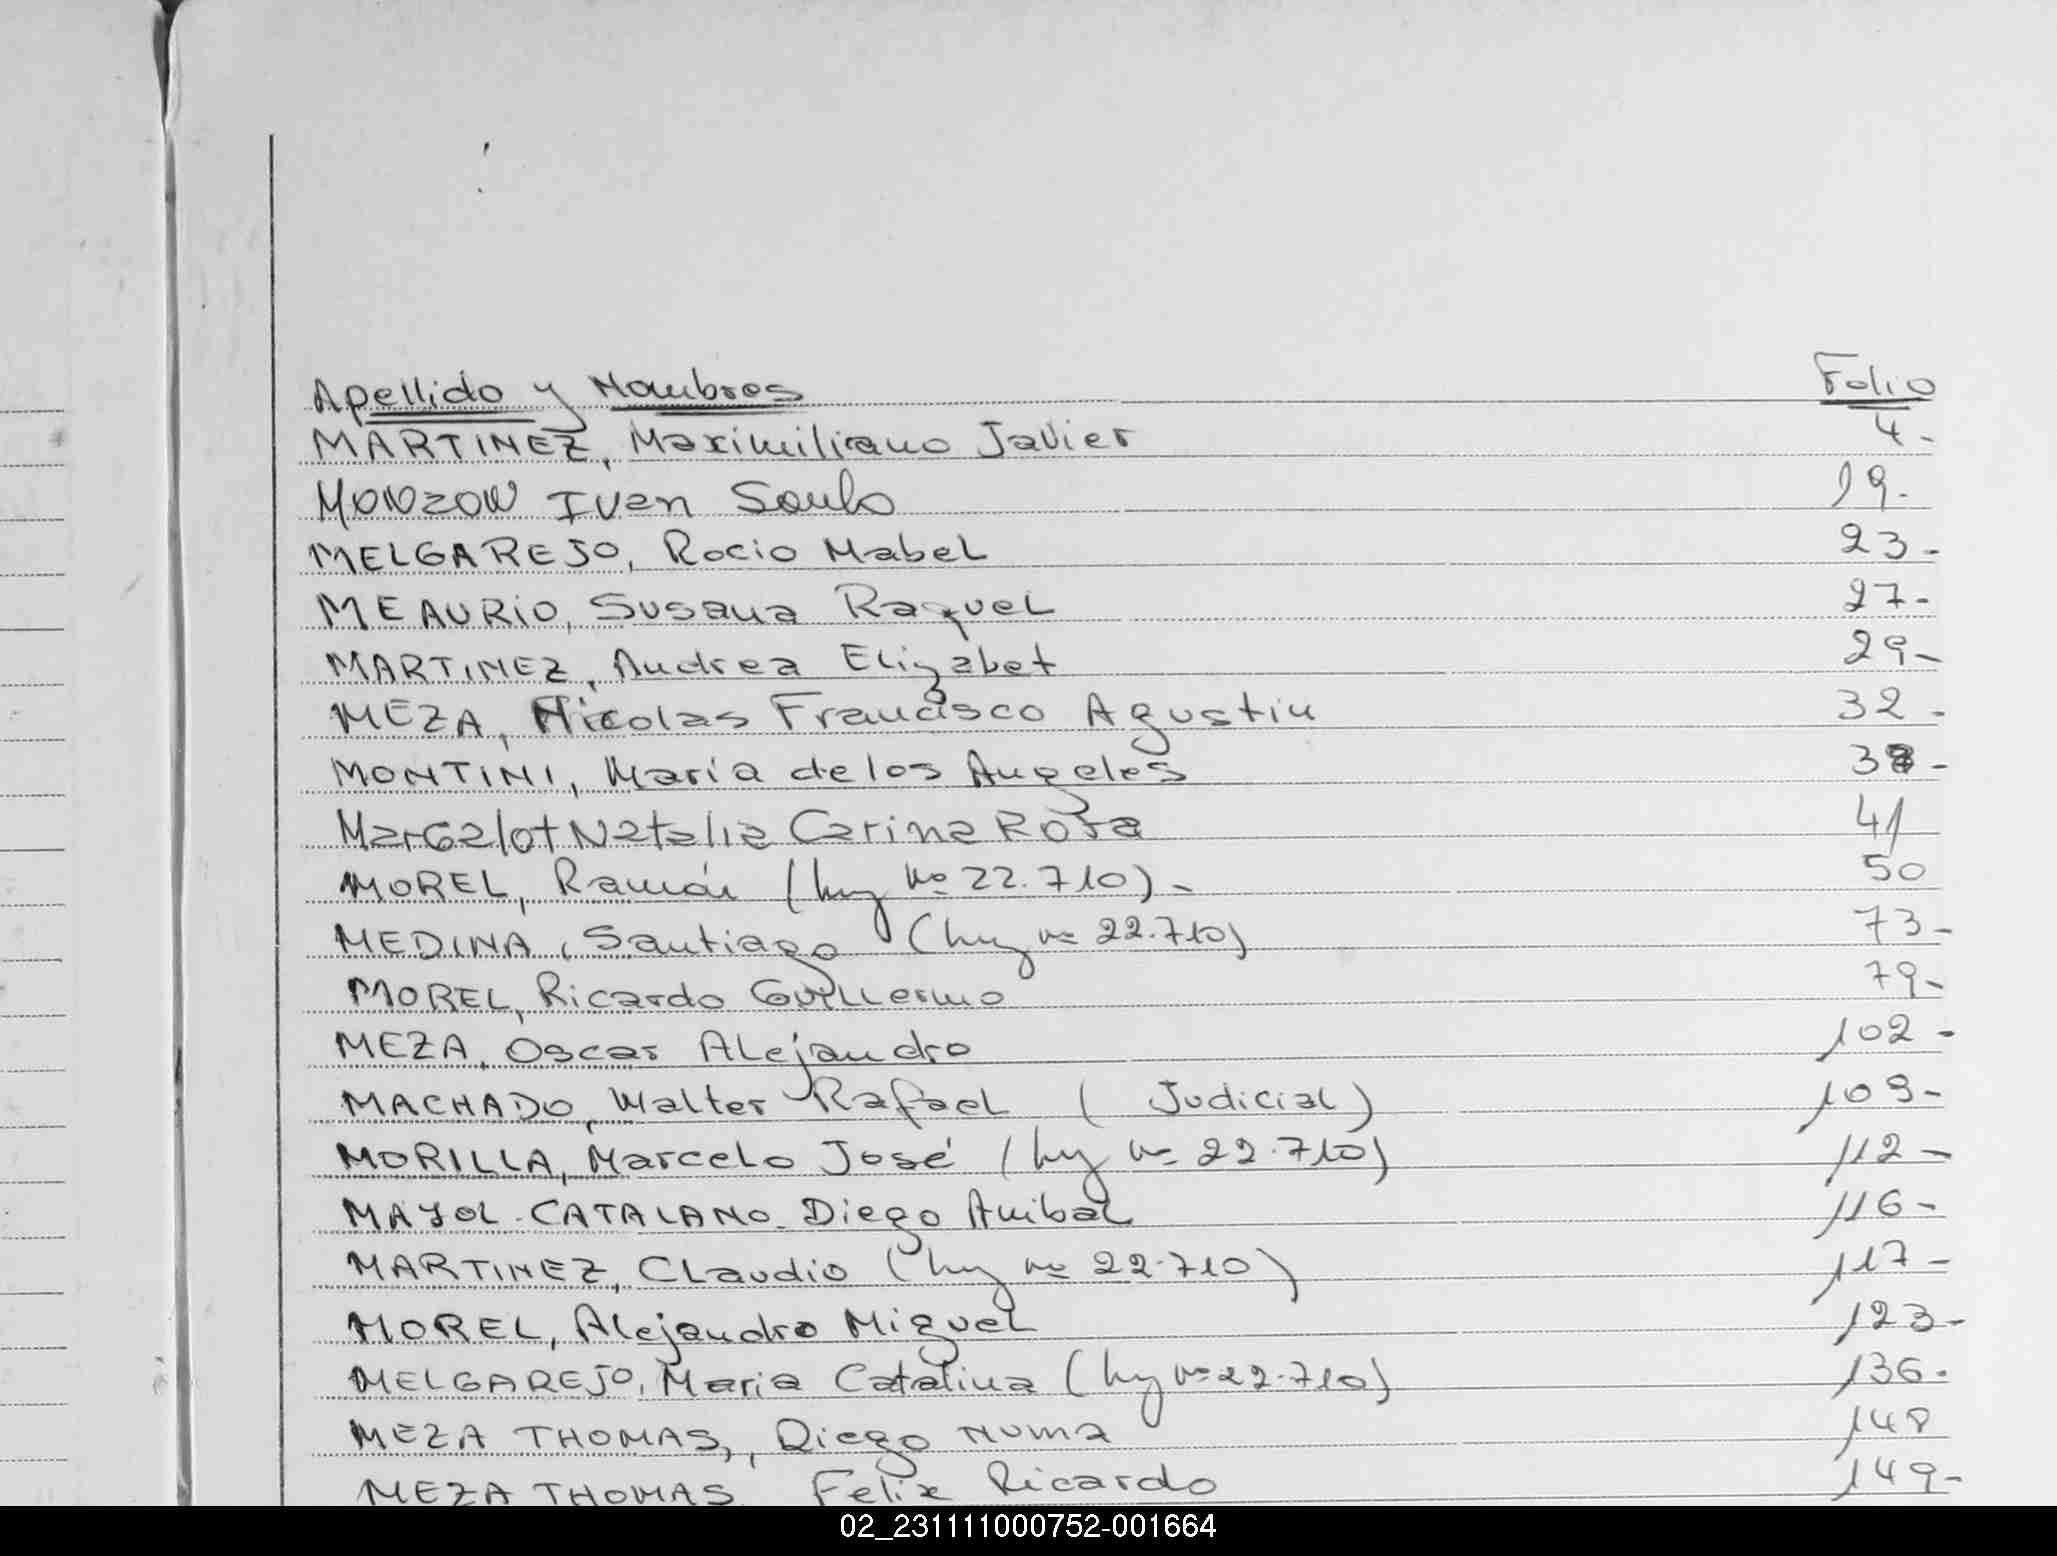 Apellido y Nombres Folio
MARTINEZ, Maximiliano Javier 4-
MONZON Ivan Saulo 19.
MELGAREJO, Rocio Mabel 23-
MEAURIO, Susana Raquel 27-
MARTINEZ, Andrea Elizabet 29-
MEZA, Nicolas Francisco Agustin 32-
MONTINI, María de los Angeles
MarGalot Natalia Carina Rosa 41
MOREL, Ramón (ley nº 22.710)- 50
MEDINA, Santiago (ley nº 22.710) 73-
MOREL, Ricardo Guillermo 79-
MEZA, Oscar Alejandro 102-
MACHADO, Walter Rafael (Judicial) 109-
MORILLA, Marcelo José (ley nº 22.710) 112-
MAYOL-CATALANO. Diego Anibal 116-
MARTINEZ, Claudio (ley nº 22.710) 117-
MOREL, Alejandro Miguel 123-
MELGAREJO, Maria Catalina (ley nº 22.710) 136.
MEZA THOMAS, Diego Numa 148
MEZA THOMAS Felix Ricardo 149-
02_231111000752-001664